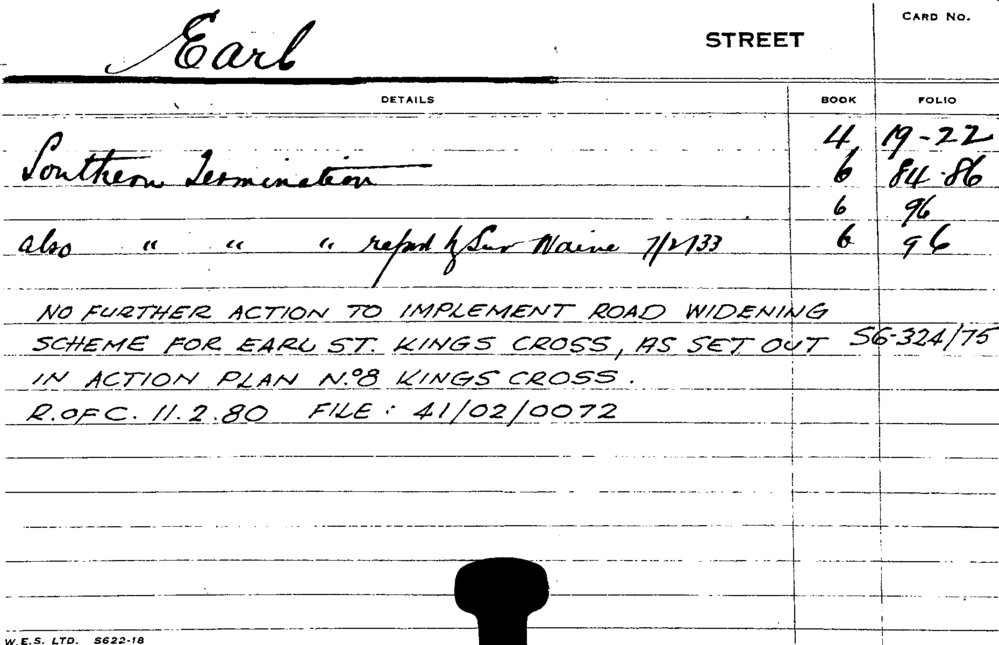 Earl STREET CARD NO.
DETAILS BOOK FOLIO
4 19-22
Southern Termination 6 84-86
6 96
also " " " report by Sur 7/2/33 6 96
NO FURTHER ACTION TO IMPLEMENT ROAD WIDENING
SCHEME FOR EARL ST. KINGS CROSS, AS SET OUT S6-324/75
IN ACTION PLAN Nº8 KINGS CROSS.
R.OF C. 11.2.80 FILE: 41/02/0072
W.E.S. LTD. S622-18